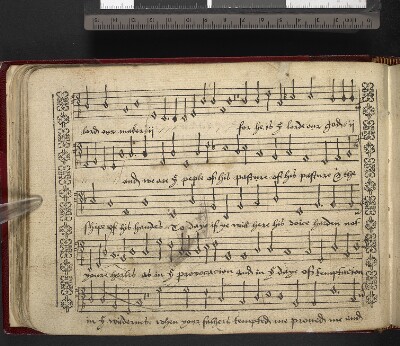 lord our maker ij for he is yͤ lorde our god ij
and we are yͤ peple of his pasture of his pasture & the
shipe of his handes To daye if ye will here his voice harden not
youre hertes as in yͤ provocacion and in yͤ daye of temptacion
in yͤ wildernes when your fathers tempted me proved me and